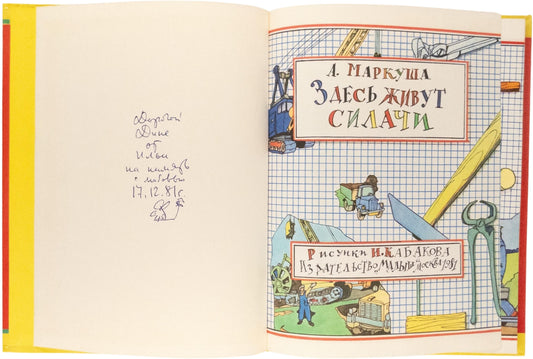 Дорогой
Дине
от
Ильи
на память
с любовью
17.12.81г.
А. Маркуша
Здесь живут
силачи
Рисунки И. Кабакова
Издательство „Малыш" Москва 1981